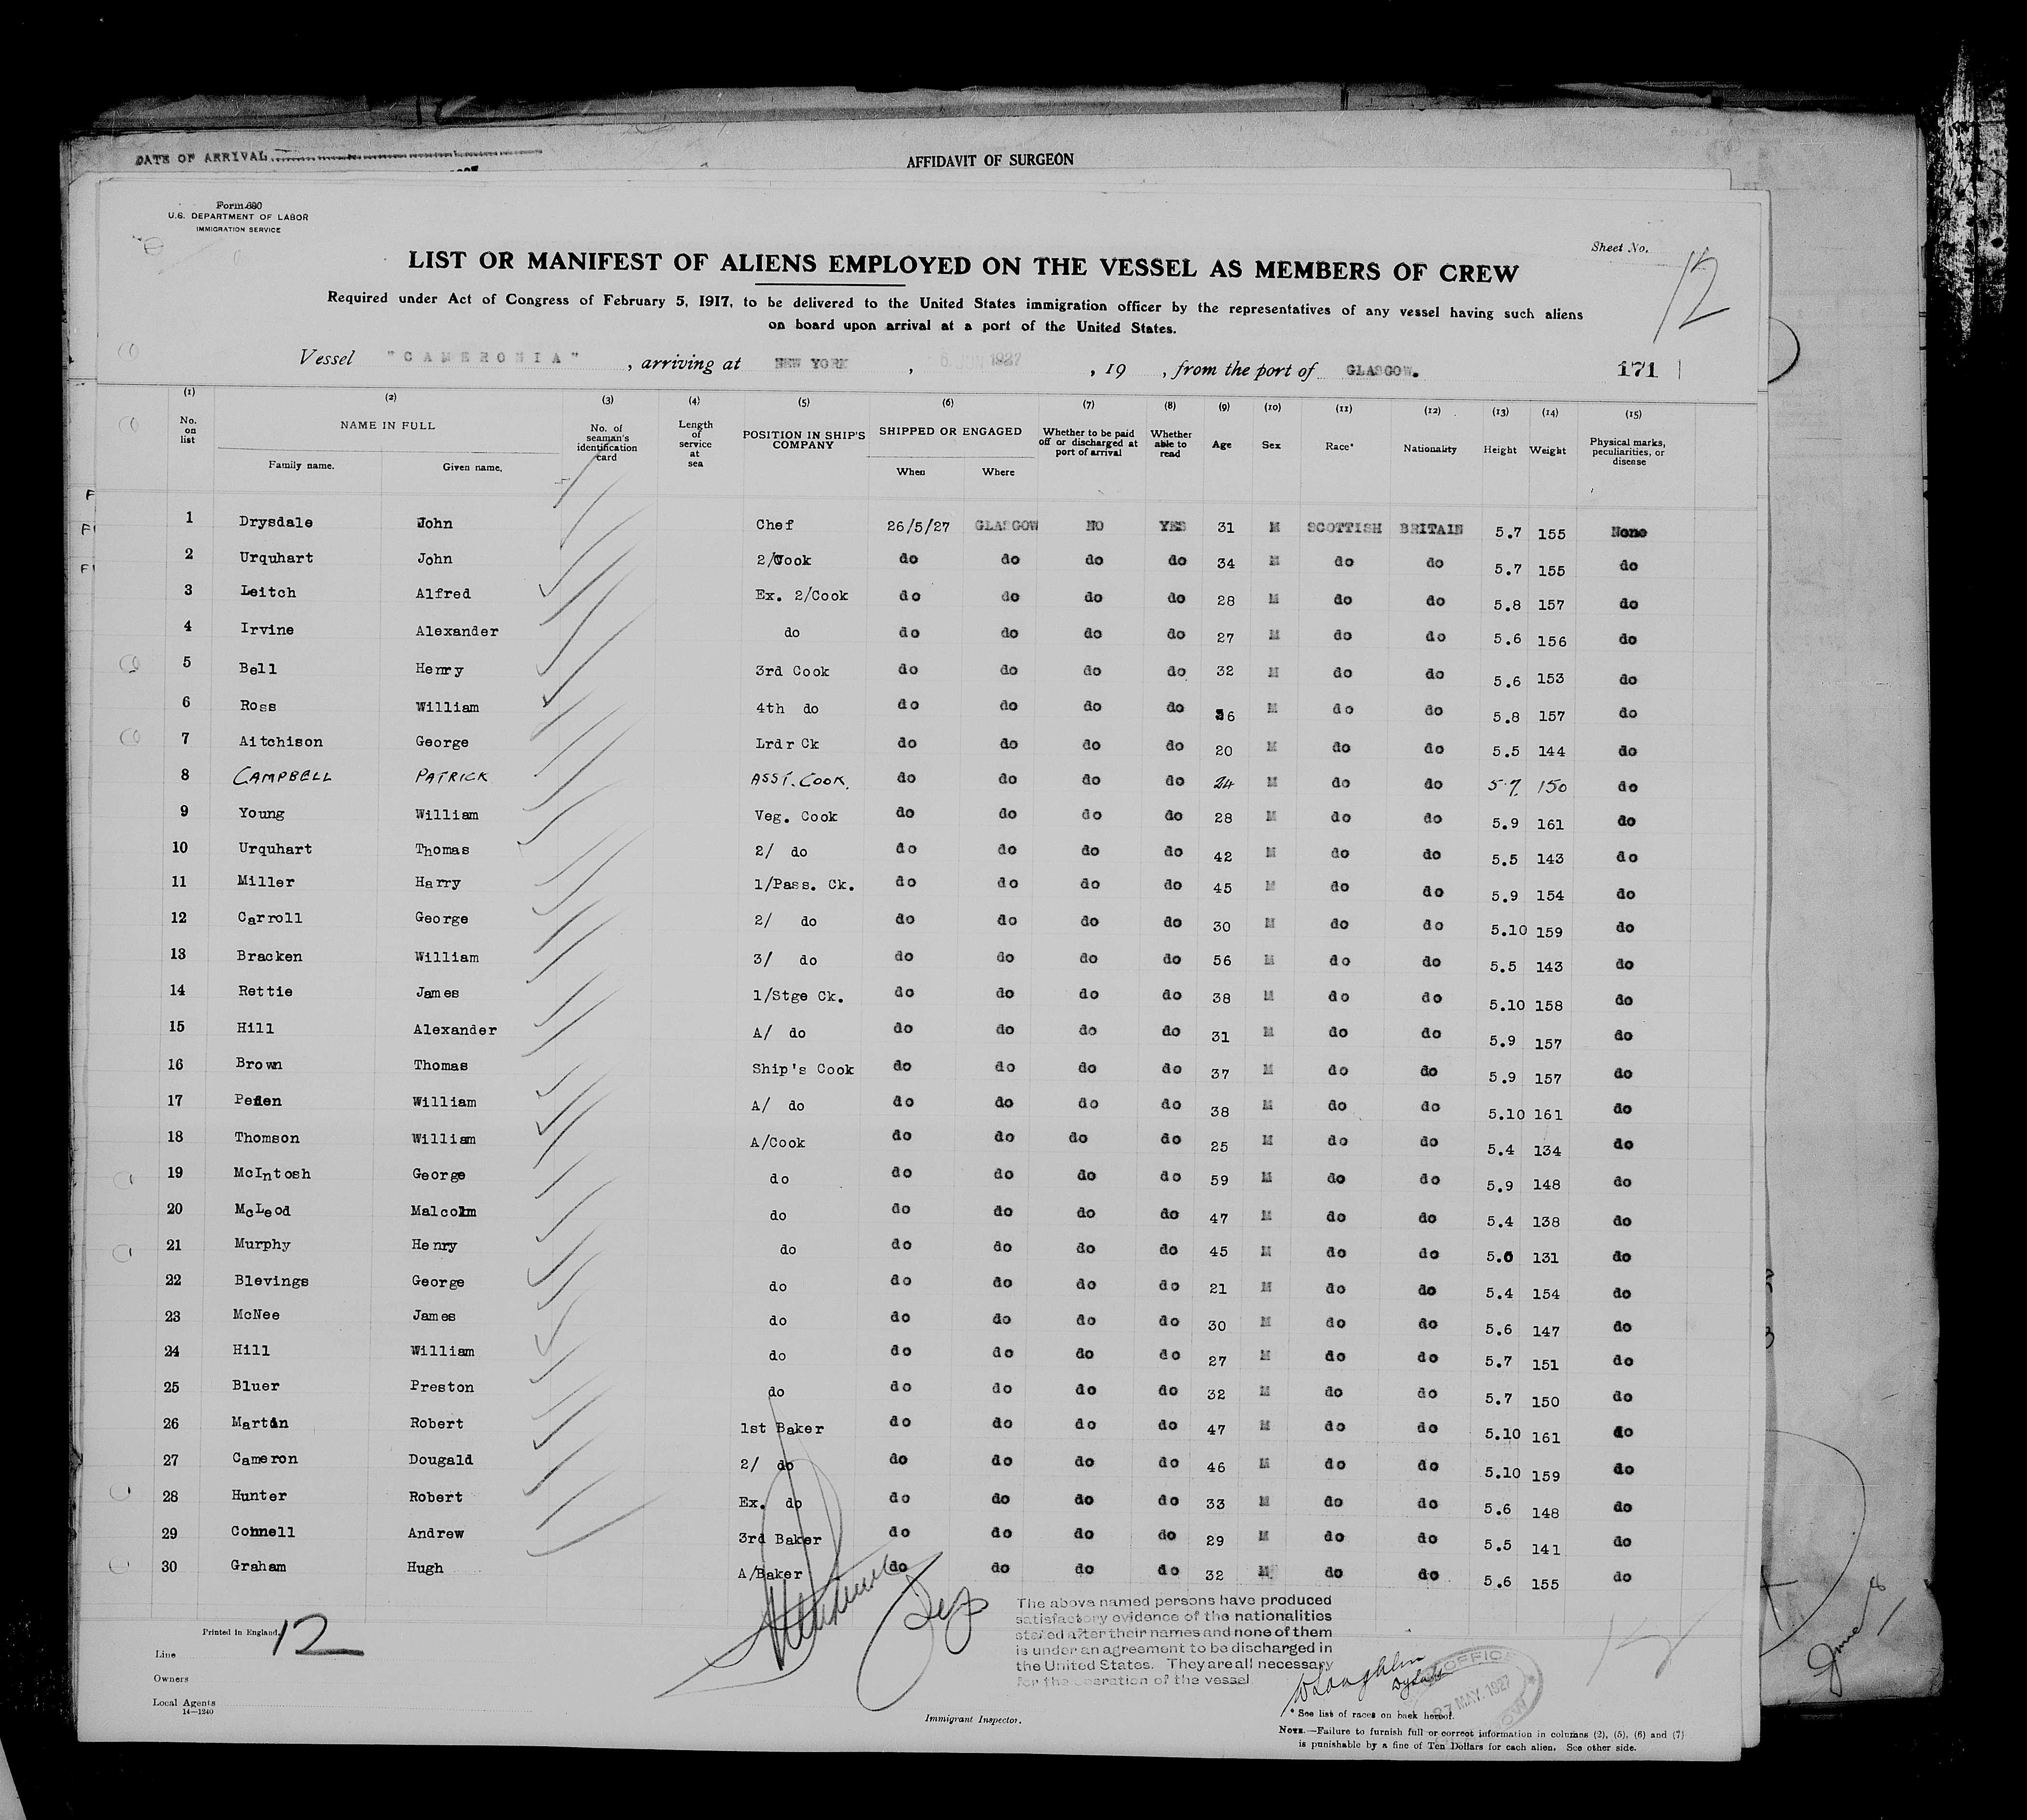 DATE OF ARRIVAL
AFFIDAVIT OF SURGEON
Form 680
U.S. DEPARTMENT OF LABOR
IMMIGRATION SERVICE
Sheet No. 12
LIST OR MANIFEST OF ALIENS EMPLOYED ON THE VESSEL AS MEMBERS OF CREW
Required under Act of Congress of February 5, 1917, to be delivered to the United States immigration officer by the representatives of any vessel having such aliens
on board upon arrival at a port of the United States.
Vessel "CAMERONIA", arriving at NEW YORK, 6 JUN 1927, 19 , from the port of GLASGOW. 171
(1) (2) (3) (4) (5) (6) (7) (8) (9) (10) (11) (12) (13) (14) (15)
No. on list NAME IN FULL Family name. Given name. No. of seaman's identification card Length of service at sea POSITION IN SHIP'S COMPANY SHIPPED OR ENGAGED When Where Whether to be paid off or discharged at port of arrival Whether able to read Age Sex Race* Nationality Height Weight Physical marks, peculiarities, or disease
1 Drysdale John Chef 26/5/27 GLASGOW NO YES 31 M SCOTTISH BRITAIN 5.7 155 None
2 Urquhart John 2/Cook do do do do 34 M do do 5.7 155 do
3 Leitch Alfred Ex. 2/Cook do do do do 28 M do do 5.8 157 do
4 Irvine Alexander do do do do do 27 M do do 5.6 156 do
5 Bell Henry 3rd Cook do do do do 32 M do do 5.6 153 do
6 Ross William 4th do do do do do 36 M do do 5.8 157 do
7 Aitchison George Lrdr Ck do do do do 20 M do do 5.5 144 do
8 CAMPBELL PATRICK ASST. COOK. do do do do 24 M do do 5.7 150 do
9 Young William Veg. Cook do do do do 28 M do do 5.9 161 do
10 Urquhart Thomas 2/ do do do do do 42 M do do 5.5 143 do
11 Miller Harry 1/Pass. Ck. do do do do 45 M do do 5.9 154 do
12 Carroll George 2/ do do do do do 30 M do do 5.10 159 do
13 Bracken William 3/ do do do do do 56 M do do 5.5 143 do
14 Rettie James 1/Stge Ck. do do do do 38 M do do 5.10 158 do
15 Hill Alexander A/ do do do do do 31 M do do 5.9 157 do
16 Brown Thomas Ship's Cook do do do do 37 M do do 5.9 157 do
17 William A/ do do do do do 38 M do do 5.10 161 do
18 Thomson William A/Cook do do do do 25 M do do 5.4 134 do
19 McIntosh George do do do do do 59 M do do 5.9 148 do
20 McLeod Malcolm do do do do do 47 M do do 5.4 138 do
21 Murphy Henry do do do do do 45 M do do 5.0 131 do
22 Blevings George do do do do do 21 M do do 5.4 154 do
23 McNee James do do do do do 30 M do do 5.6 147 do
24 Hill William do do do do do 27 M do do 5.7 151 do
25 Bluer Preston do do do do do 32 M do do 5.7 150 do
26 Martin Robert 1st Baker do do do do 47 M do do 5.10 161 do
27 Cameron Dougald 2/ do do do do do 46 M do do 5.10 159 do
28 Hunter Robert Ex. do do do do do 33 M do do 5.6 148 do
29 Connell Andrew 3rd Baker do do do do 29 M do do 5.5 141 do
30 Graham Hugh A/Baker do do do do 32 M do do 5.6 155 do
The above named persons have produced
satisfactory evidence of the nationalities
stated after their names and none of them
is under an agreement to be discharged in
the United States. They are all necessary
for the operation of the vessel
Printed in England. 12
Line
Owners
Local Agents
14—1240
Immigrant Inspector.
OFFICE
27 MAY. 1927
* See list of races on back hereof.
NOTE.—Failure to furnish full or correct information in columns (2), (5), (6) and (7)
is punishable by a fine of Ten Dollars for each alien. See other side.
June